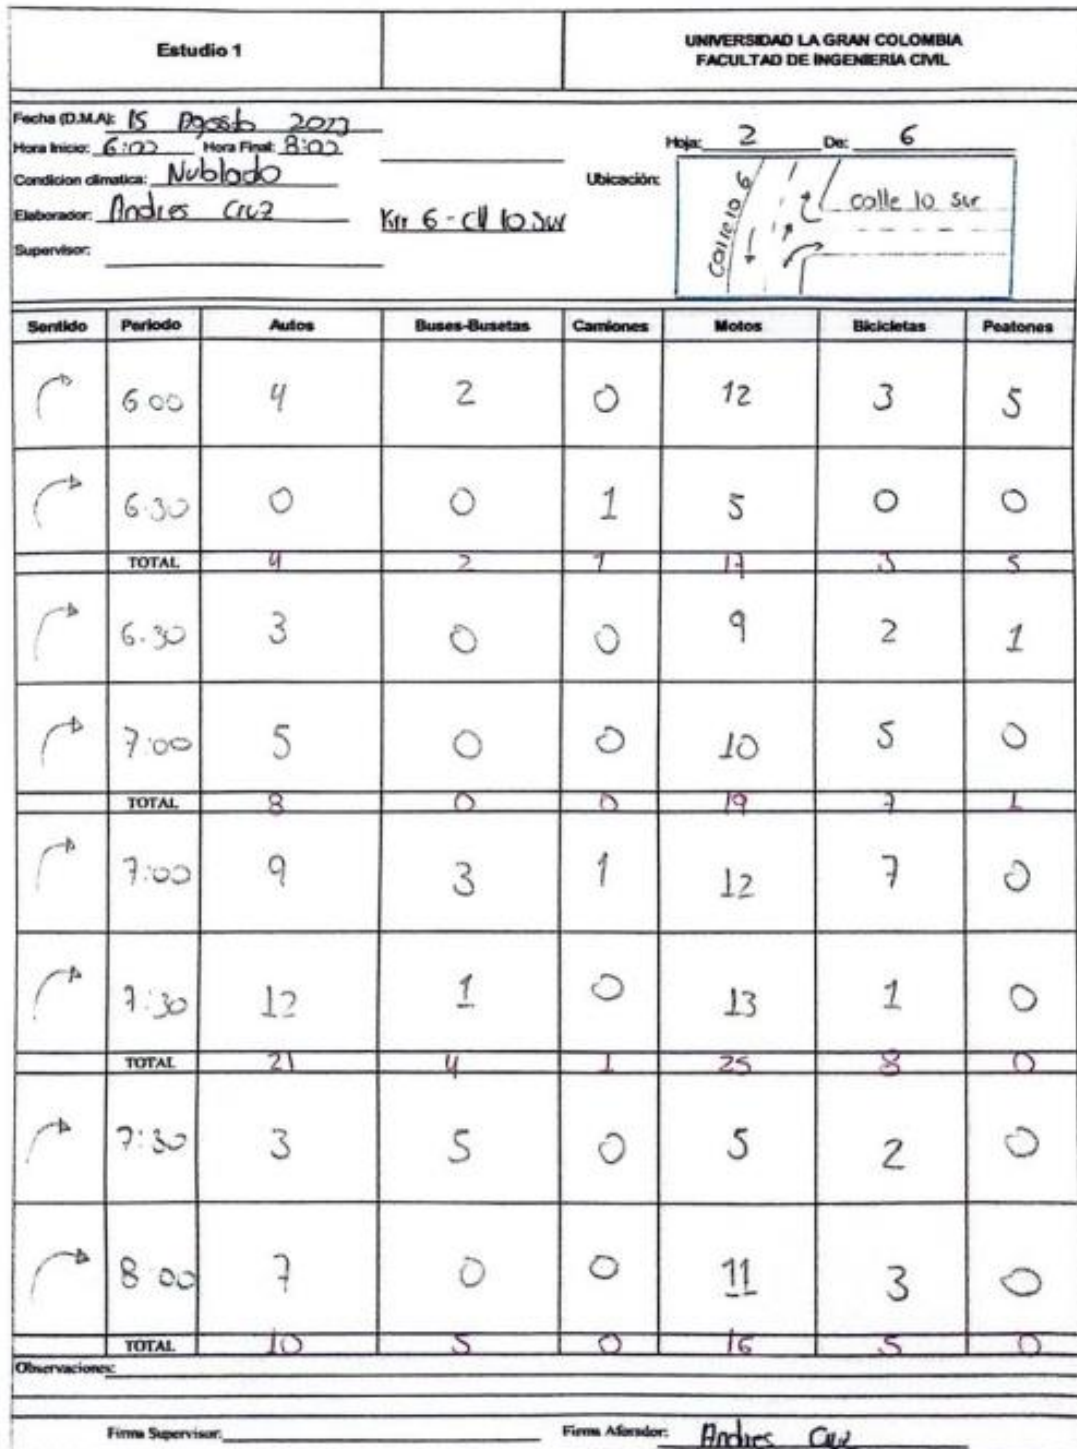 Estudio 1
UNIVERSIDAD LA GRAN COLOMBIA
FACULTAD DE INGENIERIA CIVIL
Fecha (D.M.A): 15 Agosto
Hora Inicio: 6:00 Hora Final: 8:00
Condicion climatica: Nublado
Elaborador: Andres Cruz
Supervisor:
Krr 6 - Cll 10 Sur
Hoja: 2 De: 6
Ubicación:
calle 10 Sur
Sentido Periodo Autos Buses-Busetas Camiones Motos Bicicletas Peatones
6:00 4 2 0 12 3 5
6:30 0 0 1 5 0 0
TOTAL 4 2 1 17 3 5
6:30 3 0 0 9 2 1
7:00 5 0 0 10 5 0
TOTAL 8 0 0 19 7 1
7:00 9 3 1 12 7 0
7:30 12 1 0 13 1 0
TOTAL 21 4 1 25 8 0
7:30 3 5 0 5 2 0
8:00 7 0 0 11 3 0
TOTAL 10 5 0 16 5 0
Observaciones:
Firma Supervisor: Firma Aforador: Andres Cruz